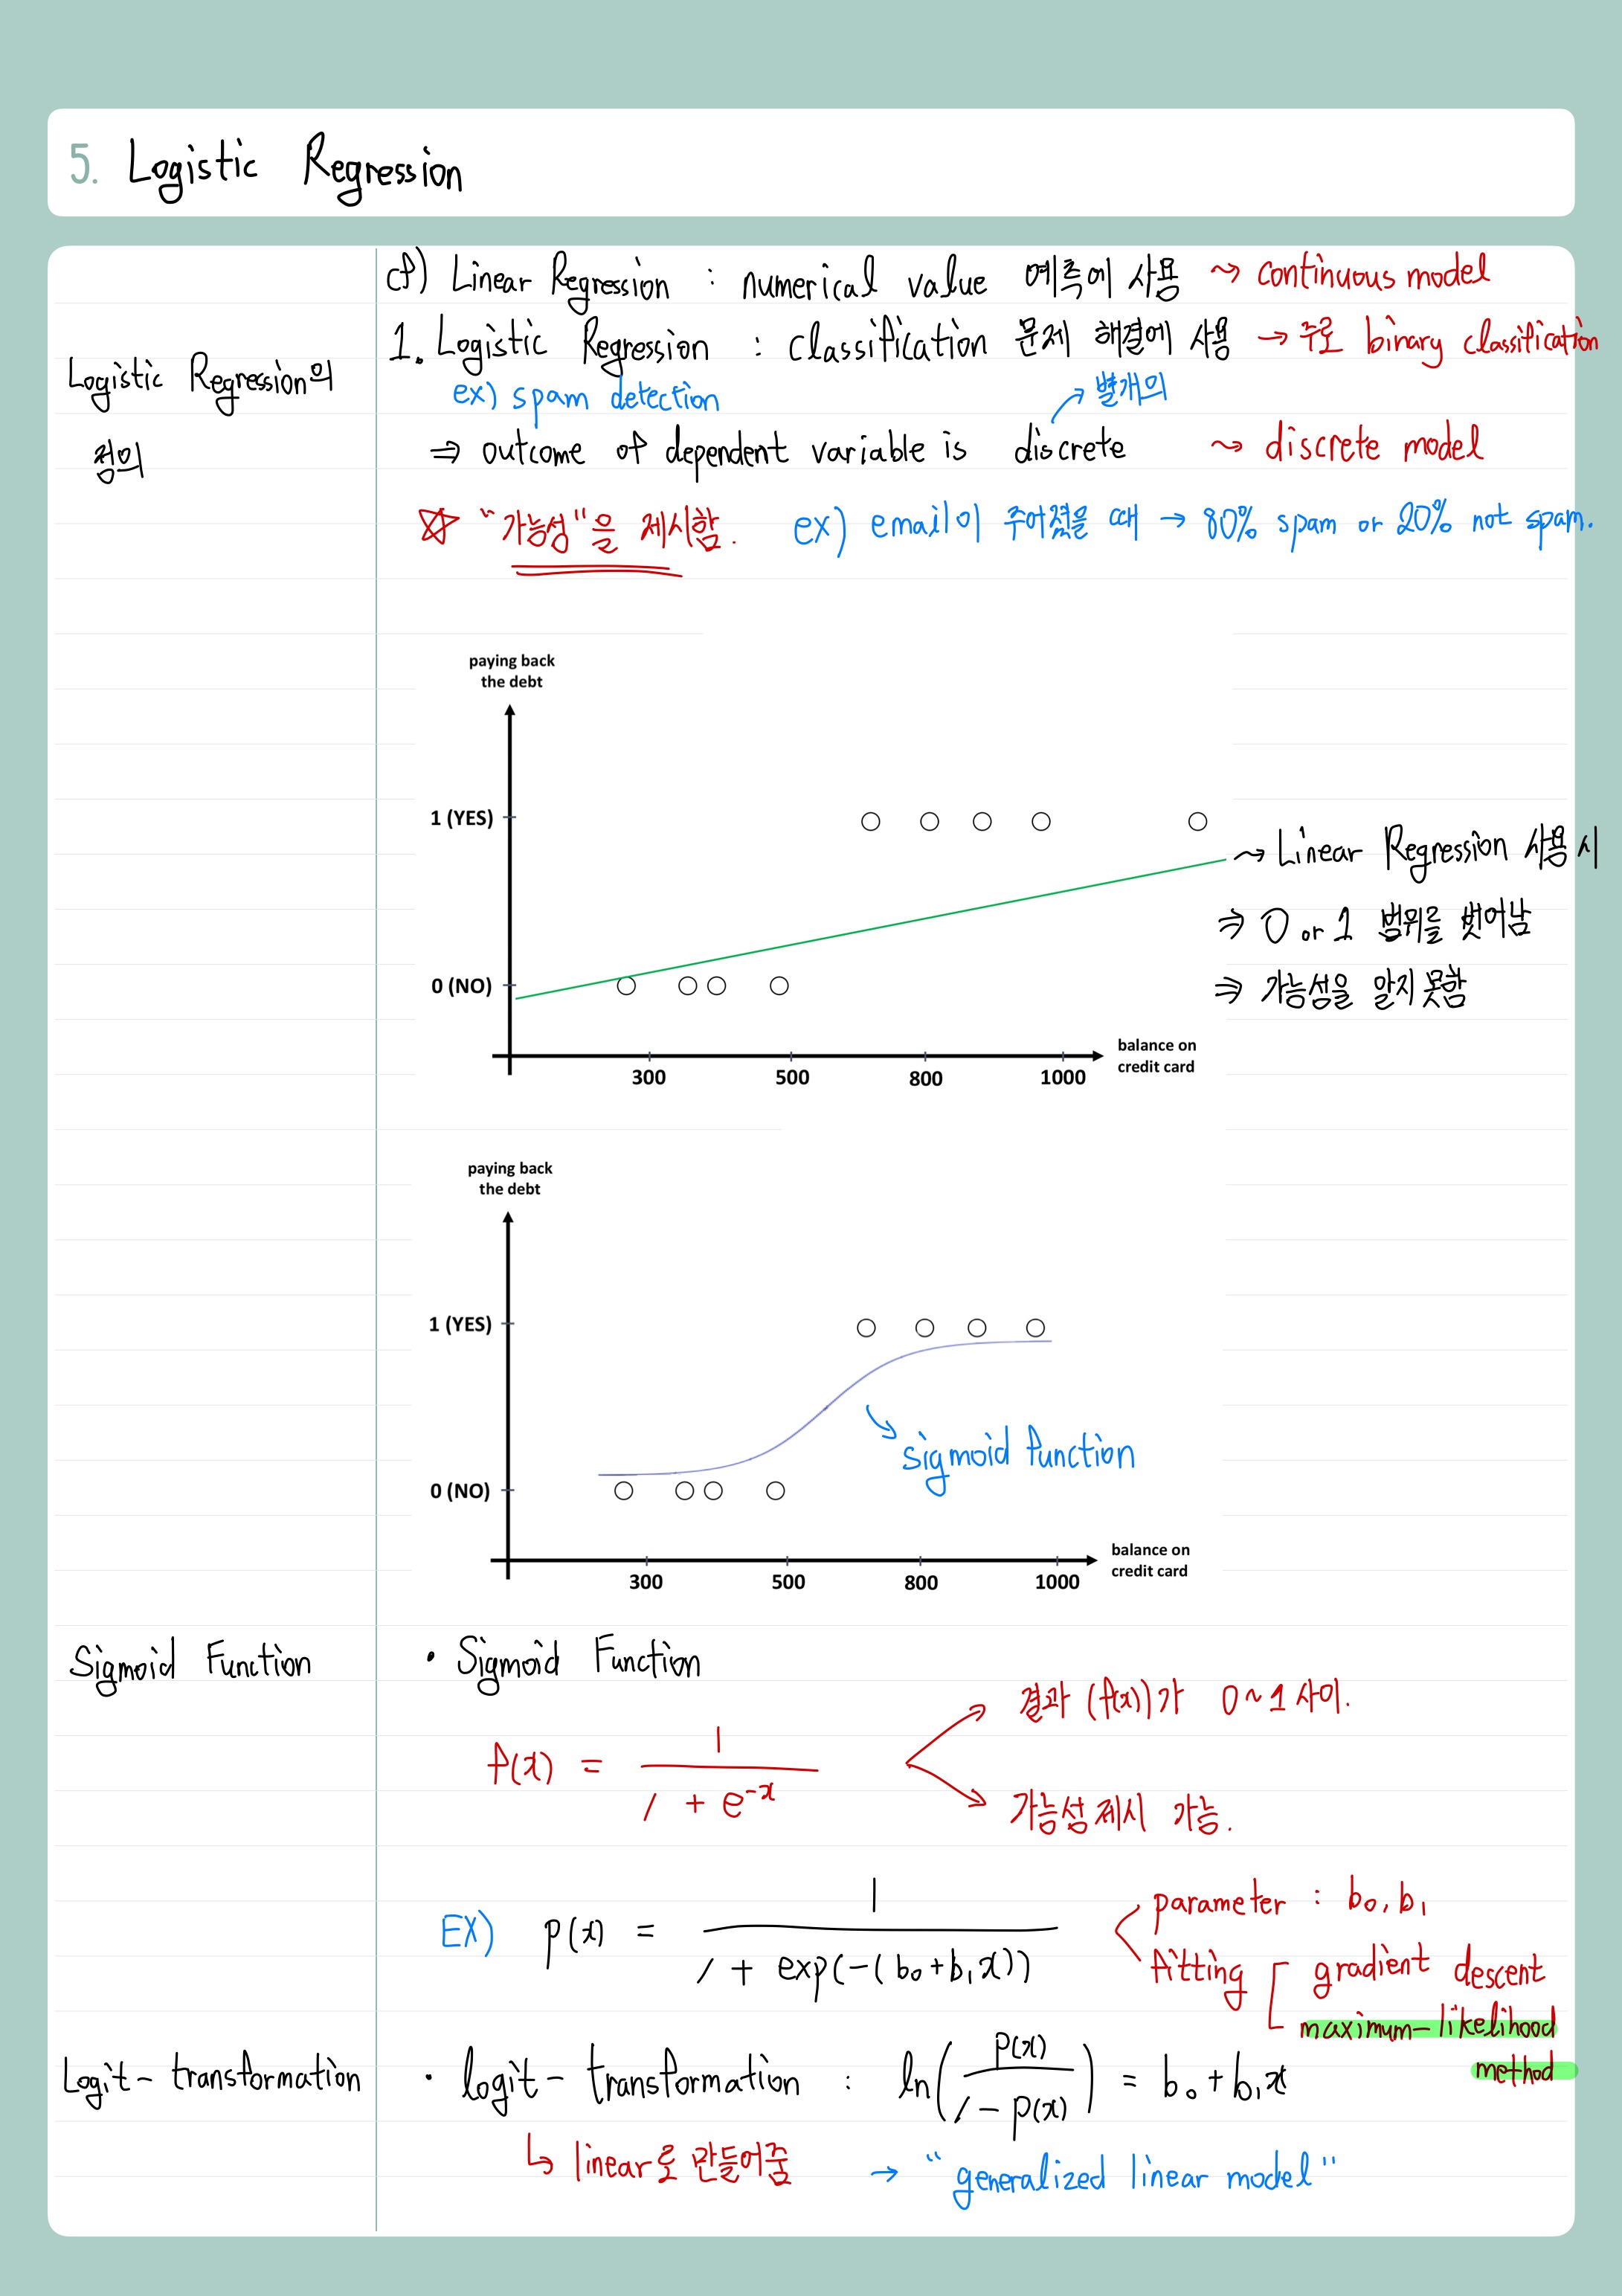 5. Logistic Regression
cf) Linear Regression : numerical value 예측에 사용 ~> continuous model
Logistic Regression의
정의
1. Logistic Regression : classification 문제 해결에 사용 → 주로 binary classification
ex) spam detection
→ 별개의
⇒ outcome of dependent variable is discrete ~> discrete model
☆ "가능성"을 제시함. ex) email이 주어졌을 때 → 80% spam or 20% not spam.
paying back
the debt
1 (YES)
0 (NO)
300 500 800 1000
balance on
credit card
~> Linear Regression 사용 시
⇒ 0 or 1 범위를 벗어남
⇒ 가능성을 알지 못함
paying back
the debt
1 (YES)
0 (NO)
sigmoid function
300 500 800 1000
balance on
credit card
Sigmoid Function
• Sigmoid Function
f(x) = 1 / (1 + e^-x)
결과 (f(x))가 0~1 사이.
가능성 제시 가능.
EX) p(x) = 1 / (1 + exp(-(b₀+b₁x)))
parameter : b₀, b₁
fitting [ gradient descent
maximum-likelihood
method
Logit-transformation
• logit-transformation : ln(p(x) / (1-p(x))) = b₀+b₁x
↳ linear로 만들어줌 → "generalized linear model"